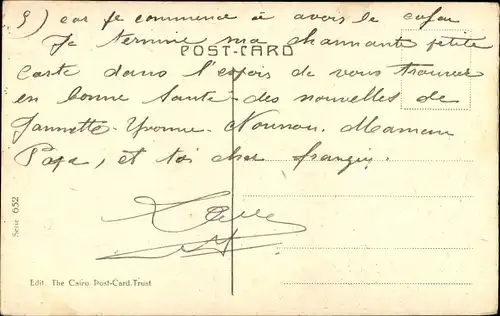 9) car je commence à avoir le cafar
Je termine ma charmante petite
POST-CARD
carte dans l'espoir de vous trouver
en bonne Santé - des nouvelles de
Jannette - Yvonne - Nounou. Maman
Papa, et toi cher frangin.
Serie 652
Edit. The Cairo Post-Card Trust